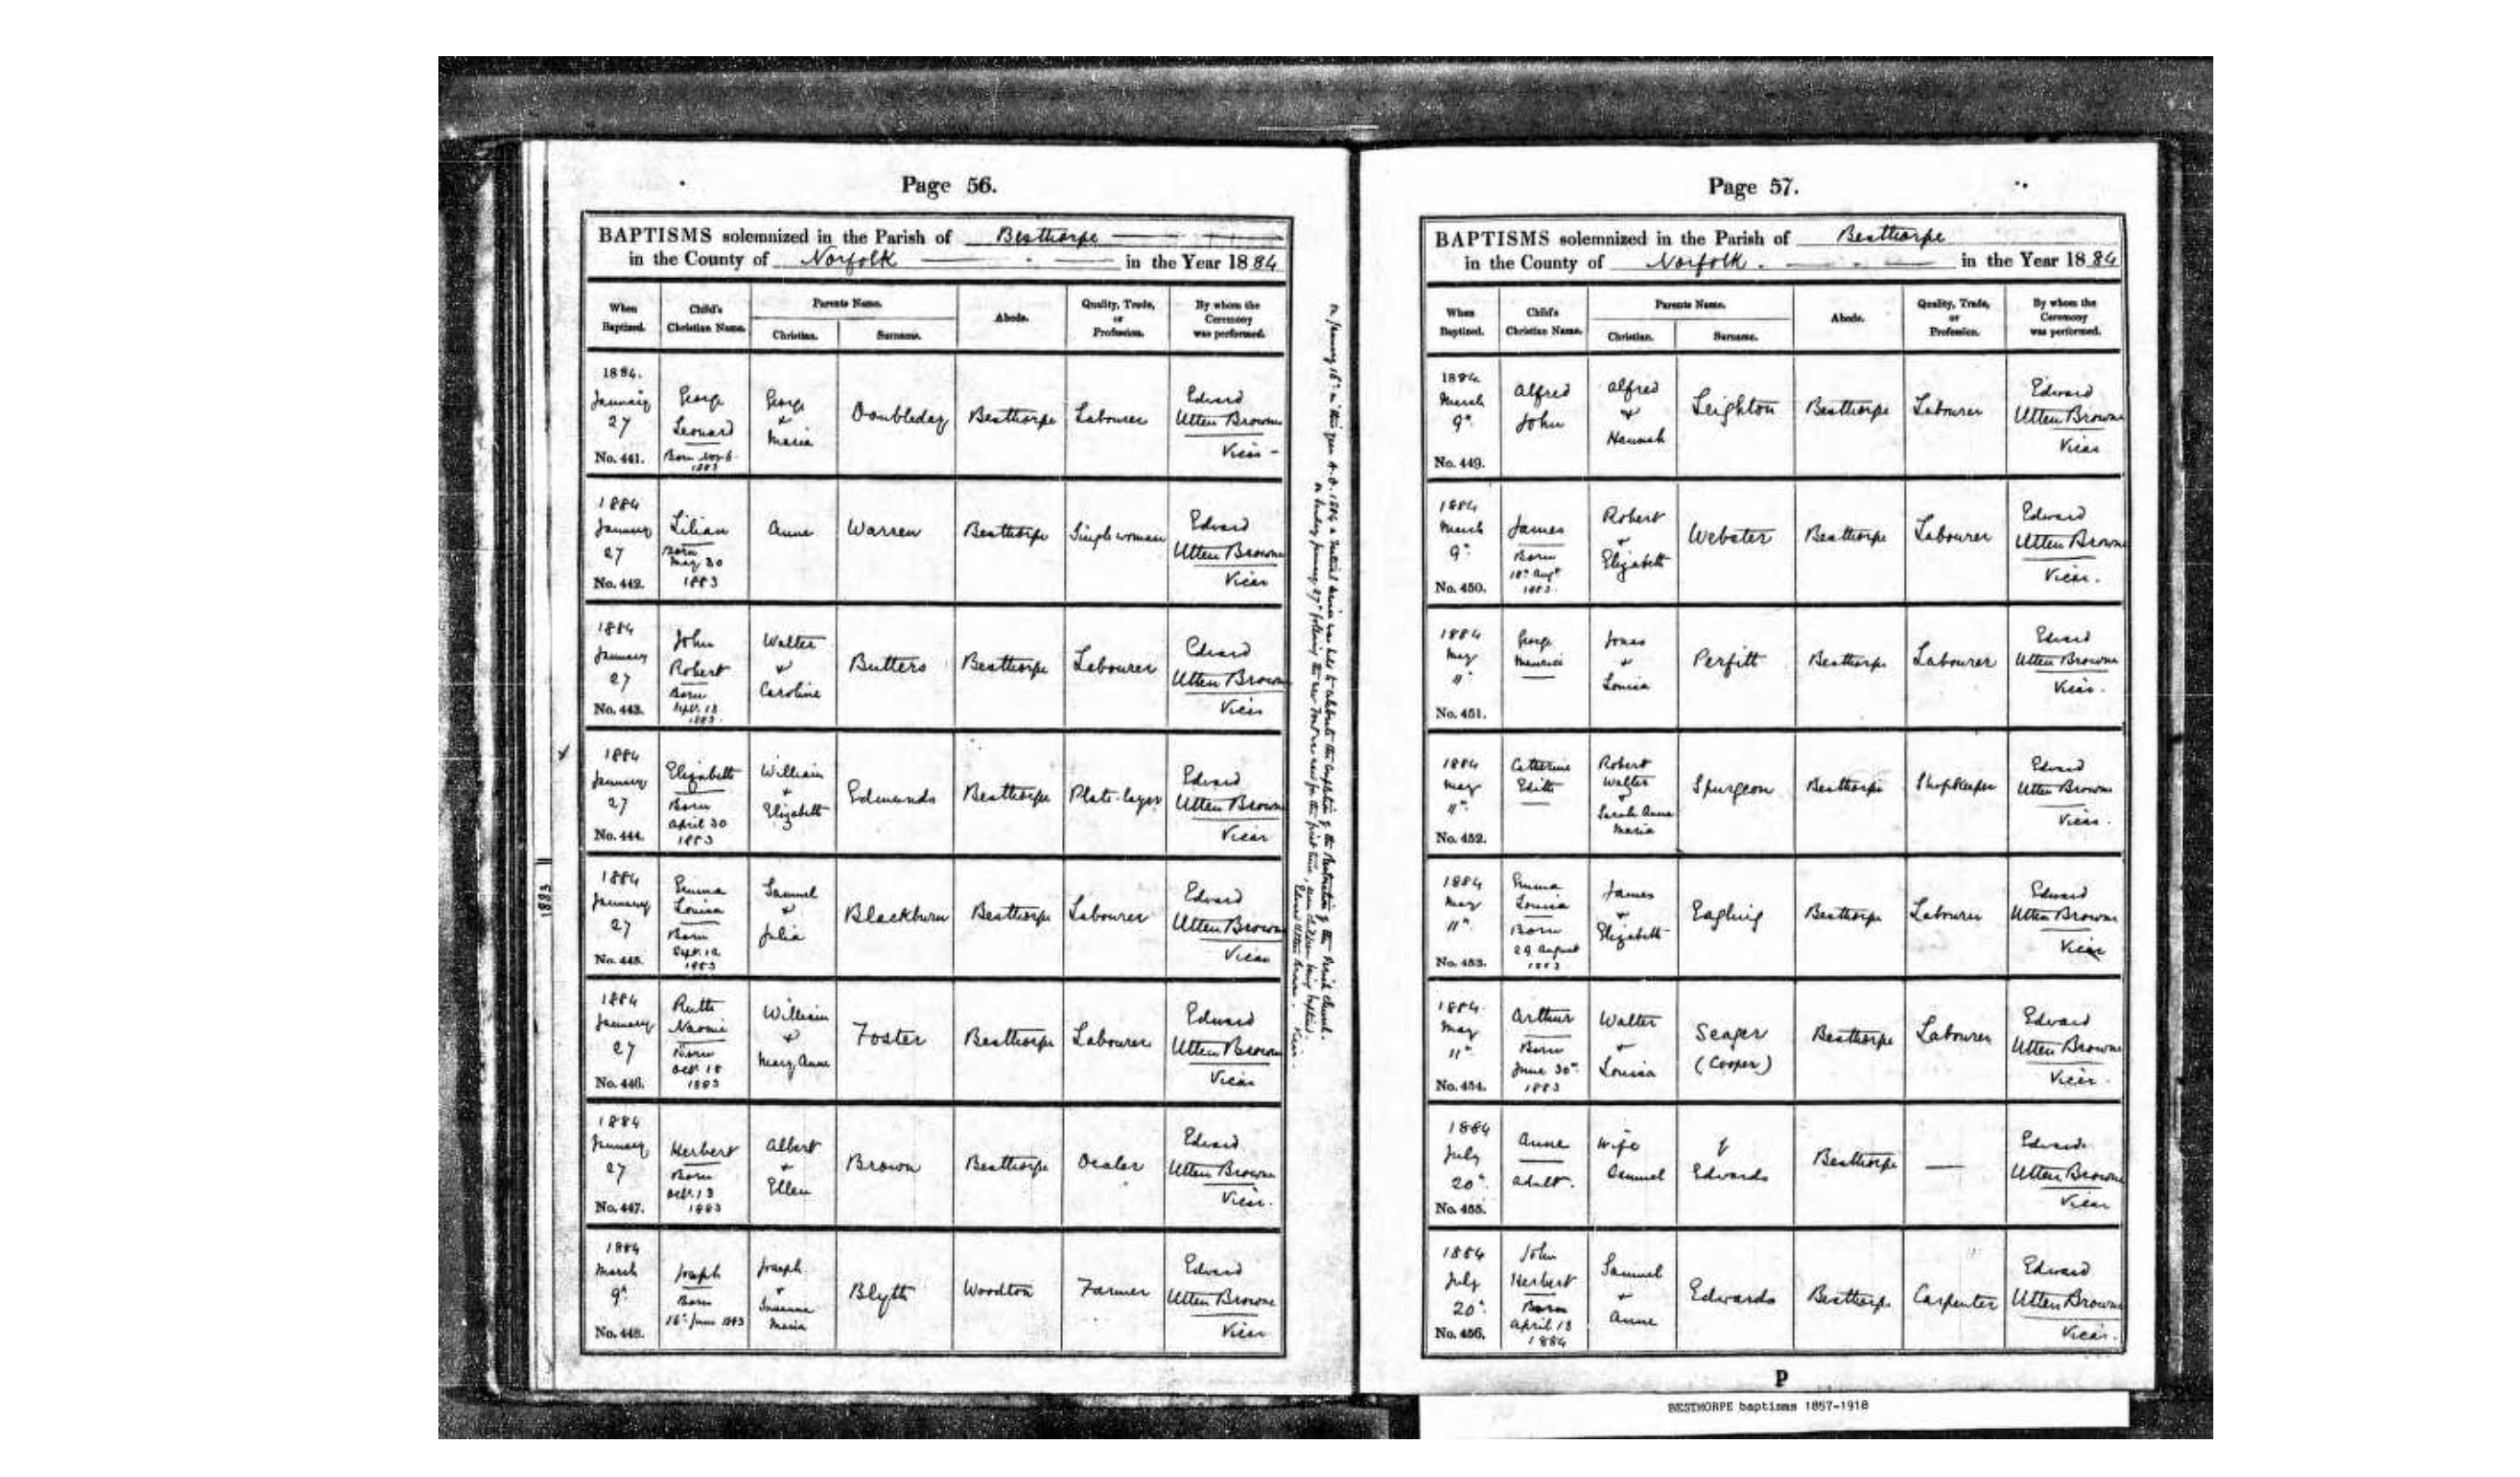 Page 56.
BAPTISMS solemnized in the Parish of Besthorpe
in the County of Norfolk in the Year 1884
When Baptized. Child's Christian Name. Parents Name. Christian. Surname. Abode. Quality, Trade, or Profession. By whom the Ceremony was performed.
1884. January 27 No. 441. George Leonard Born Nov 6 1883 George & Maria Doubleday Besthorpe Labourer Edward Utten Browne Vicar
1884 January 27 No. 442. Lilian Born May 30 1883 Anne Warren Besthorpe Singlewoman Edward Utten Browne Vicar
1884 January 27 No. 443. John Robert Born Sept. 13 1883. Walter & Caroline Butters Besthorpe Labourer Edward Utten Browne Vicar
1884 January 27 No. 444. Elizabeth Born April 30 1883 William & Elizabeth Edmunds Besthorpe Plate-layer Edward Utten Browne Vicar
1884 January 27 No. 445. Emma Louisa Born Sept. 12 1883 Samuel & Julia Blackburn Besthorpe Labourer Edward Utten Browne Vicar
1884 January 27 No. 446. Ruth Naomi Born Oct. 18 1883 William & Mary Anne Foster Besthorpe Labourer Edward Utten Browne Vicar
1884 January 27 No. 447. Herbert Born Oct. 13 1883 Albert & Ellen Brown Besthorpe Dealer Edward Utten Browne Vicar.
1884 March 9th No. 448. Joseph Born 16th June 1883 Joseph & Susanna Maria Blyth Woodton Farmer Edward Utten Browne Vicar
1883
on January 16th in this year A.D. 1884 a service was held to celebrate the completion of the Restoration of the Parish Church.
on Sunday January 27th following the new Font was used for the first time, seven children being baptized.
Edward Utten Browne. Vicar.
Page 57.
BAPTISMS solemnized in the Parish of Besthorpe
in the County of Norfolk. in the Year 1884
When Baptized. Child's Christian Name. Parents Name. Christian. Surname. Abode. Quality, Trade, or Profession. By whom the Ceremony was performed.
1884. March 9th No. 449. Alfred John Alfred & Hannah Leighton Besthorpe Labourer Edward Utten Browne Vicar
1884 March 9th No. 450. James Born 18th Augt 1883. Robert & Elizabeth Webster Besthorpe Labourer Edward Utten Browne Vicar.
1884 May 11th No. 451. George Maurice Jonas & Louisa Perfitt Besthorpe Labourer Edward Utten Browne Vicar.
1884 May 11th No. 452. Catherine Edith Robert Walter & Sarah Anna Maria Spurgeon Besthorpe Shopkeeper Edward Utten Browne Vicar.
1884 May 11th No. 453. Emma Louisa Born 29 August 1883 James & Elizabeth Eagling Besthorpe Labourer Edward Utten Browne Vicar
1884. May 11th No. 454. Arthur Born June 30th 1883 Walter & Louisa Seager (Cooper) Besthorpe Labourer Edward Utten Browne Vicar.
1884 July 20th No. 455. Anne adult. Wife of Samuel Edwards Besthorpe — Edward Utten Browne Vicar
1884 July 20th No. 456. John Herbert Born April 13 1884 Samuel & Anne Edwards Besthorpe Carpenter Edward Utten Browne Vicar.
P
BESTHORPE baptisms 1857-1918